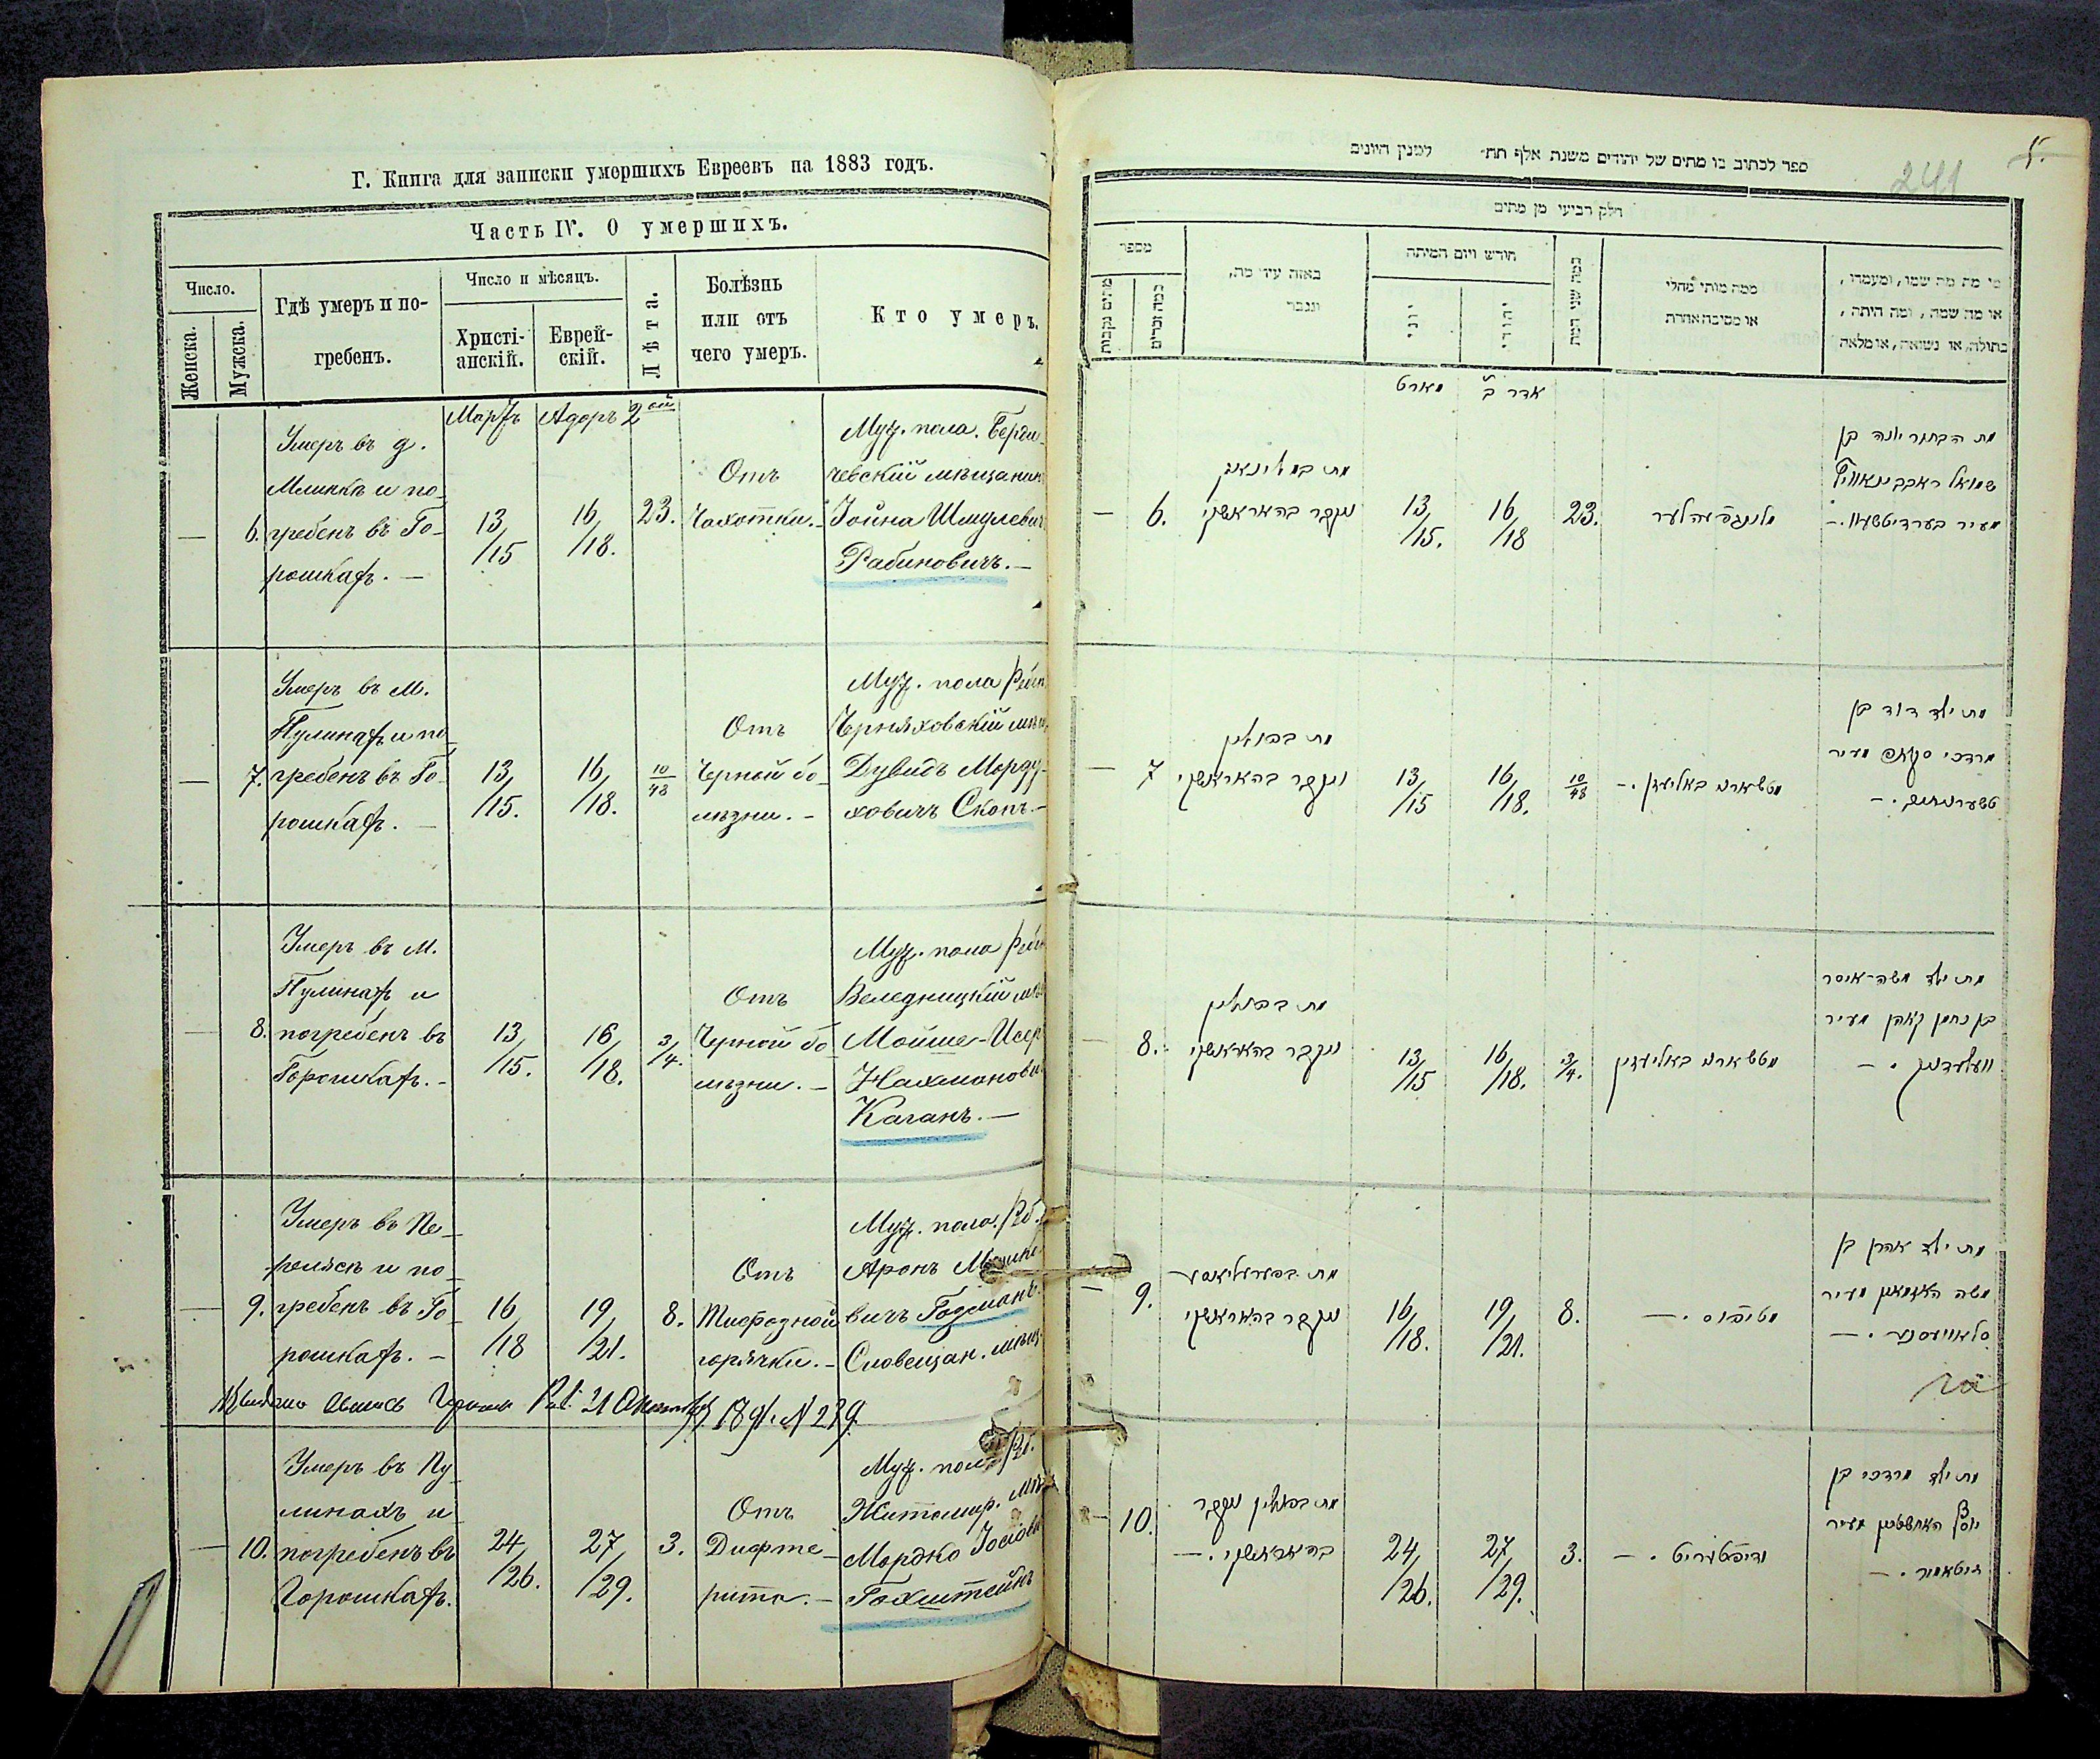 Г. Книга для записки умершихъ Евреевъ на 1883 годъ.
Часть IV. О умершихъ.
Число.
Женска.
Мужска.
Гдѣ умеръ и по-
гребенъ.
Число и мѣсяцъ.
Христі-
анскій.
Еврей-
скій.
Лѣта.
Болѣзнь
или отъ
чего умеръ.
Кто умеръ.
Мартъ
Адоръ 2ой
—
6.
Умеръ въ д.
и по-
гребенъ въ Го-
рошкахъ. —
13/15
16/18.
23.
Отъ
Чахотки. -
Муж. пола. Берди-
чевскій мѣщанин
Іойна Шмулевич
Рабиновичъ. —
—
7.
Умеръ въ М.
Пулинахъ и по-
гребенъ въ Го-
рошкахъ. —
13/15.
16/18.
10/48
Отъ
Черной бо-
лѣзни. -
Муж. пола
Черняховскій
Дувидъ Морду-
ховичъ Скопъ. -
—
8.
Умеръ въ М.
Пулинахъ и
погребенъ въ
Горошкахъ. -
13/15.
16/18.
3/4.
Отъ
Черной бо
лѣзни. —
Муж. пола
Веледницкій
Мойше-Исер
Нахманови
Каганъ. —
—
9.
Умеръ въ
и по-
гребенъ въ Го-
рошкахъ. -
16/18
19/21.
8.
Отъ
Тифозной
горячки. -
Муж. пола.
Аронъ
вичъ
Словечан. мѣщ.
21
10.
Умеръ въ Пу-
линахъ и
погребенъ въ
Горошкахъ.
24/26.
27/29.
3.
Отъ
Дифте-
рита. -
Муж. пола
Житомир.
Мордко
Гохштейнъ
ספר לכתוב בו מתים של יהודים משנת אלף תת־ למנין היונים
241
חלק רביעי מן מתים
מספר
מתים נקבות
כמה זכרים
באיזה עיר מת,
ונגבר
חודש ויום המיתה
יוני
יהודי
כמה שני המת
ממה מותי מחלי
או מסיבה אחרת
מי מת מה שמו, ומעמדו,
או מה שמה, ומה היתה,
בתולה, או נשואה, או מלאה
מארט
אדר ב׳
—
6.
ונקבר בהאראשקי
13/15.
16/18
23.
מת הבחור יונה בן
שמואל ראבבינאוויץ
מעיר בערדיטשעוו. -
—
7
מת בפולין
ונקבר בהאראשקי
13/15
16/18.
10/48
מת ילד דוד בן
מרדכי סקאפ מעיר
—
8.
מת בפולין
ונקבר בהאראשקי
13/15
16/18.
3/4.
מת ילד משה-איסר
בן נחמן קאהן מעיר
וועלעדניק. —
—
9.
ונקבר בהאראשקי
16/18.
19/21.
8.
טיפוס. —
מת ילד אהרן בן
משה האדמאן מעיר
—
10.
מת בפולין ונקבר
בהאראשקי. —
24/26.
27/29.
3.
דיפטעריט. —
מת ילד מרדכי בן
יוסף האחשטיין מעיר
זיטאמיר. —